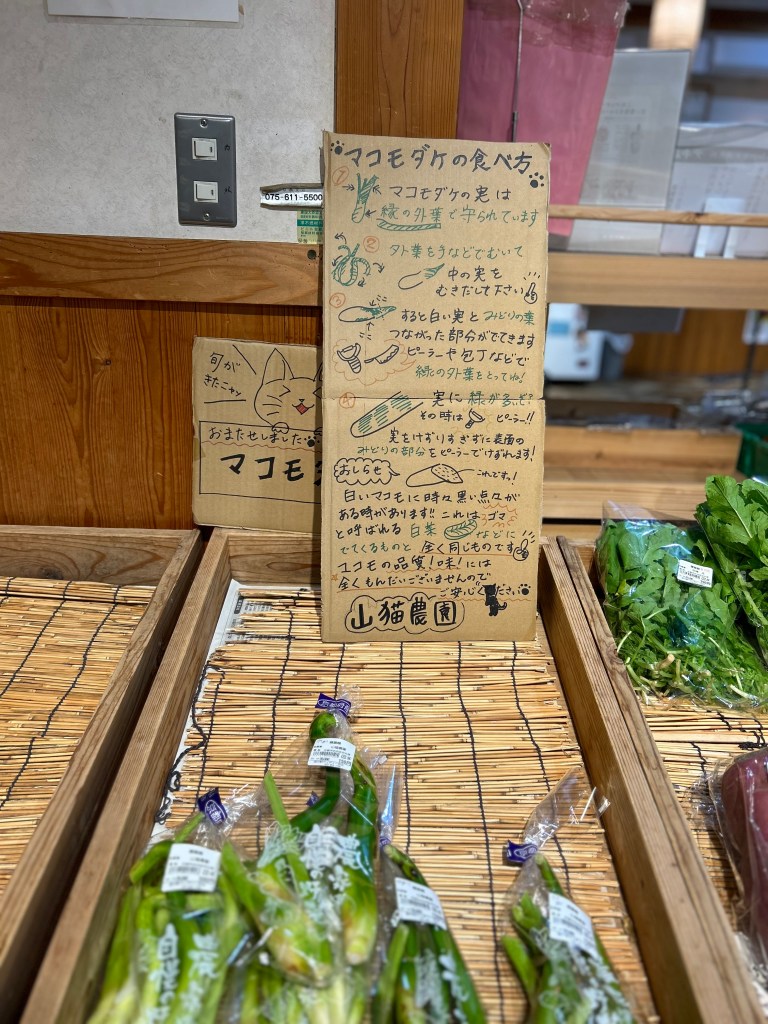 マコモダケの食べ方
① マコモダケの実は
緑の外葉で守られています
② 外葉をうなどでむいて
中の実を
むきだして下さい
③ すると白い実とみどりの葉
つながった部分がでてきます
ピーラーや包丁などで
緑の外葉をとってね!
実に緑が多いぞ?
その時は ピーラー!!
実をけずりすぎずに表面の
みどりの部分をピーラーでけずれます!
おしらせ
これです。!
白いマコモに時々黒い点々が
ある時があります!! これはゴマ
と呼ばれる 白菜 などに
でてくるものと 全く同じものです
マコモの品質!味!には
全くもんだいございませんので
ご安心ください
山猫農園
旬が
きたニャッ
おまたせしました
マコモ
075-611-5500